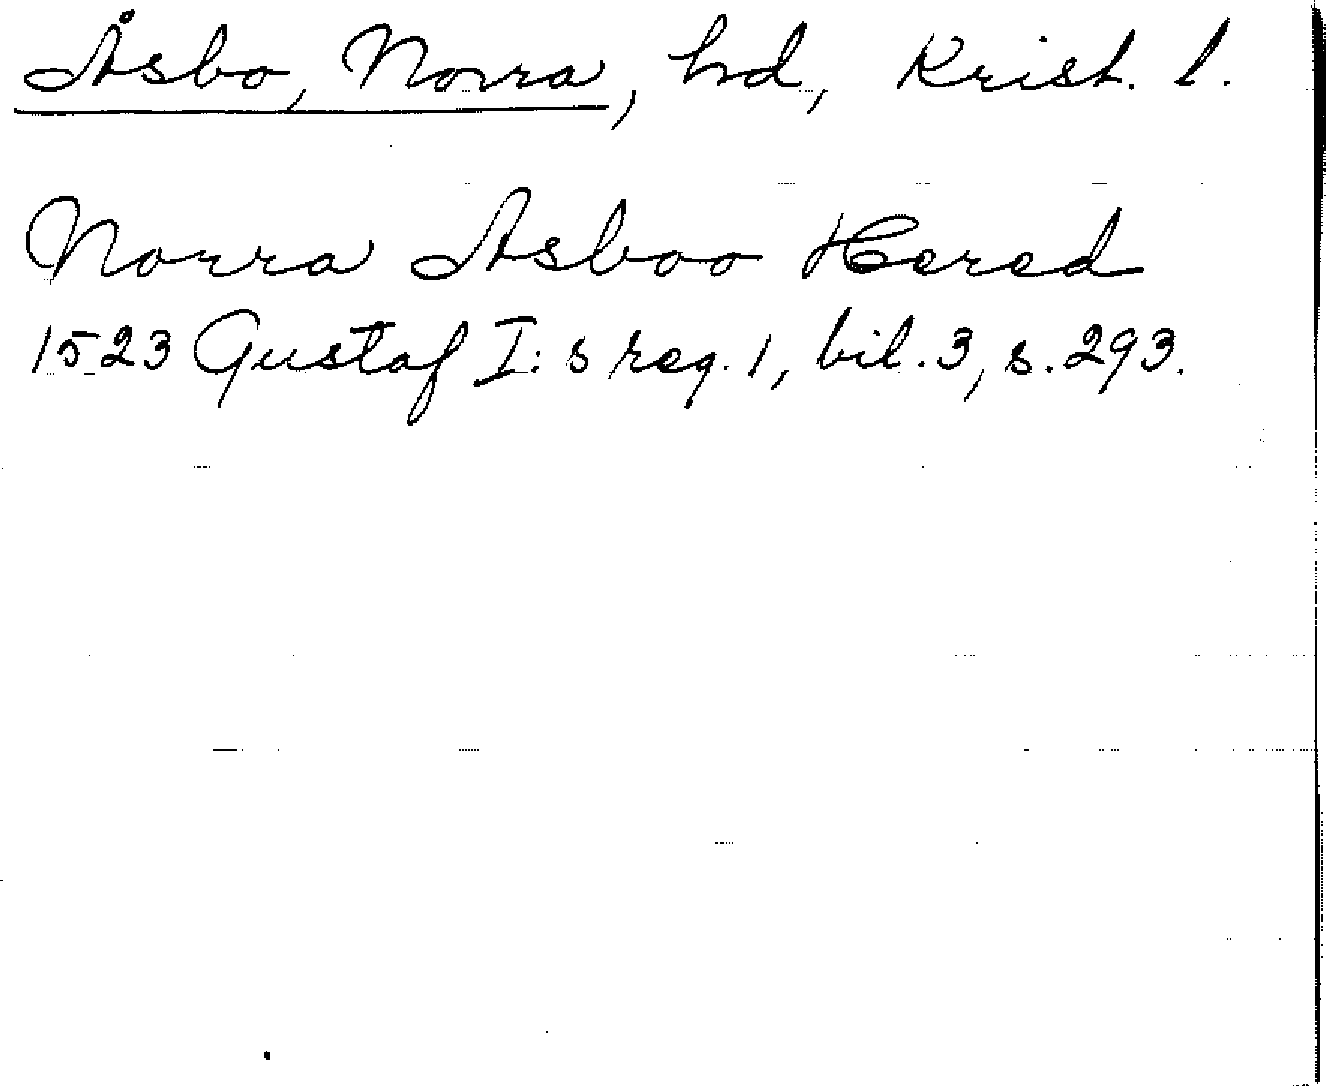 Åsbo, Norra, hd, Krist. l.
Norra Asboo Hered
1523 Gustaf I:s reg. 1, bil. 3, s. 293.